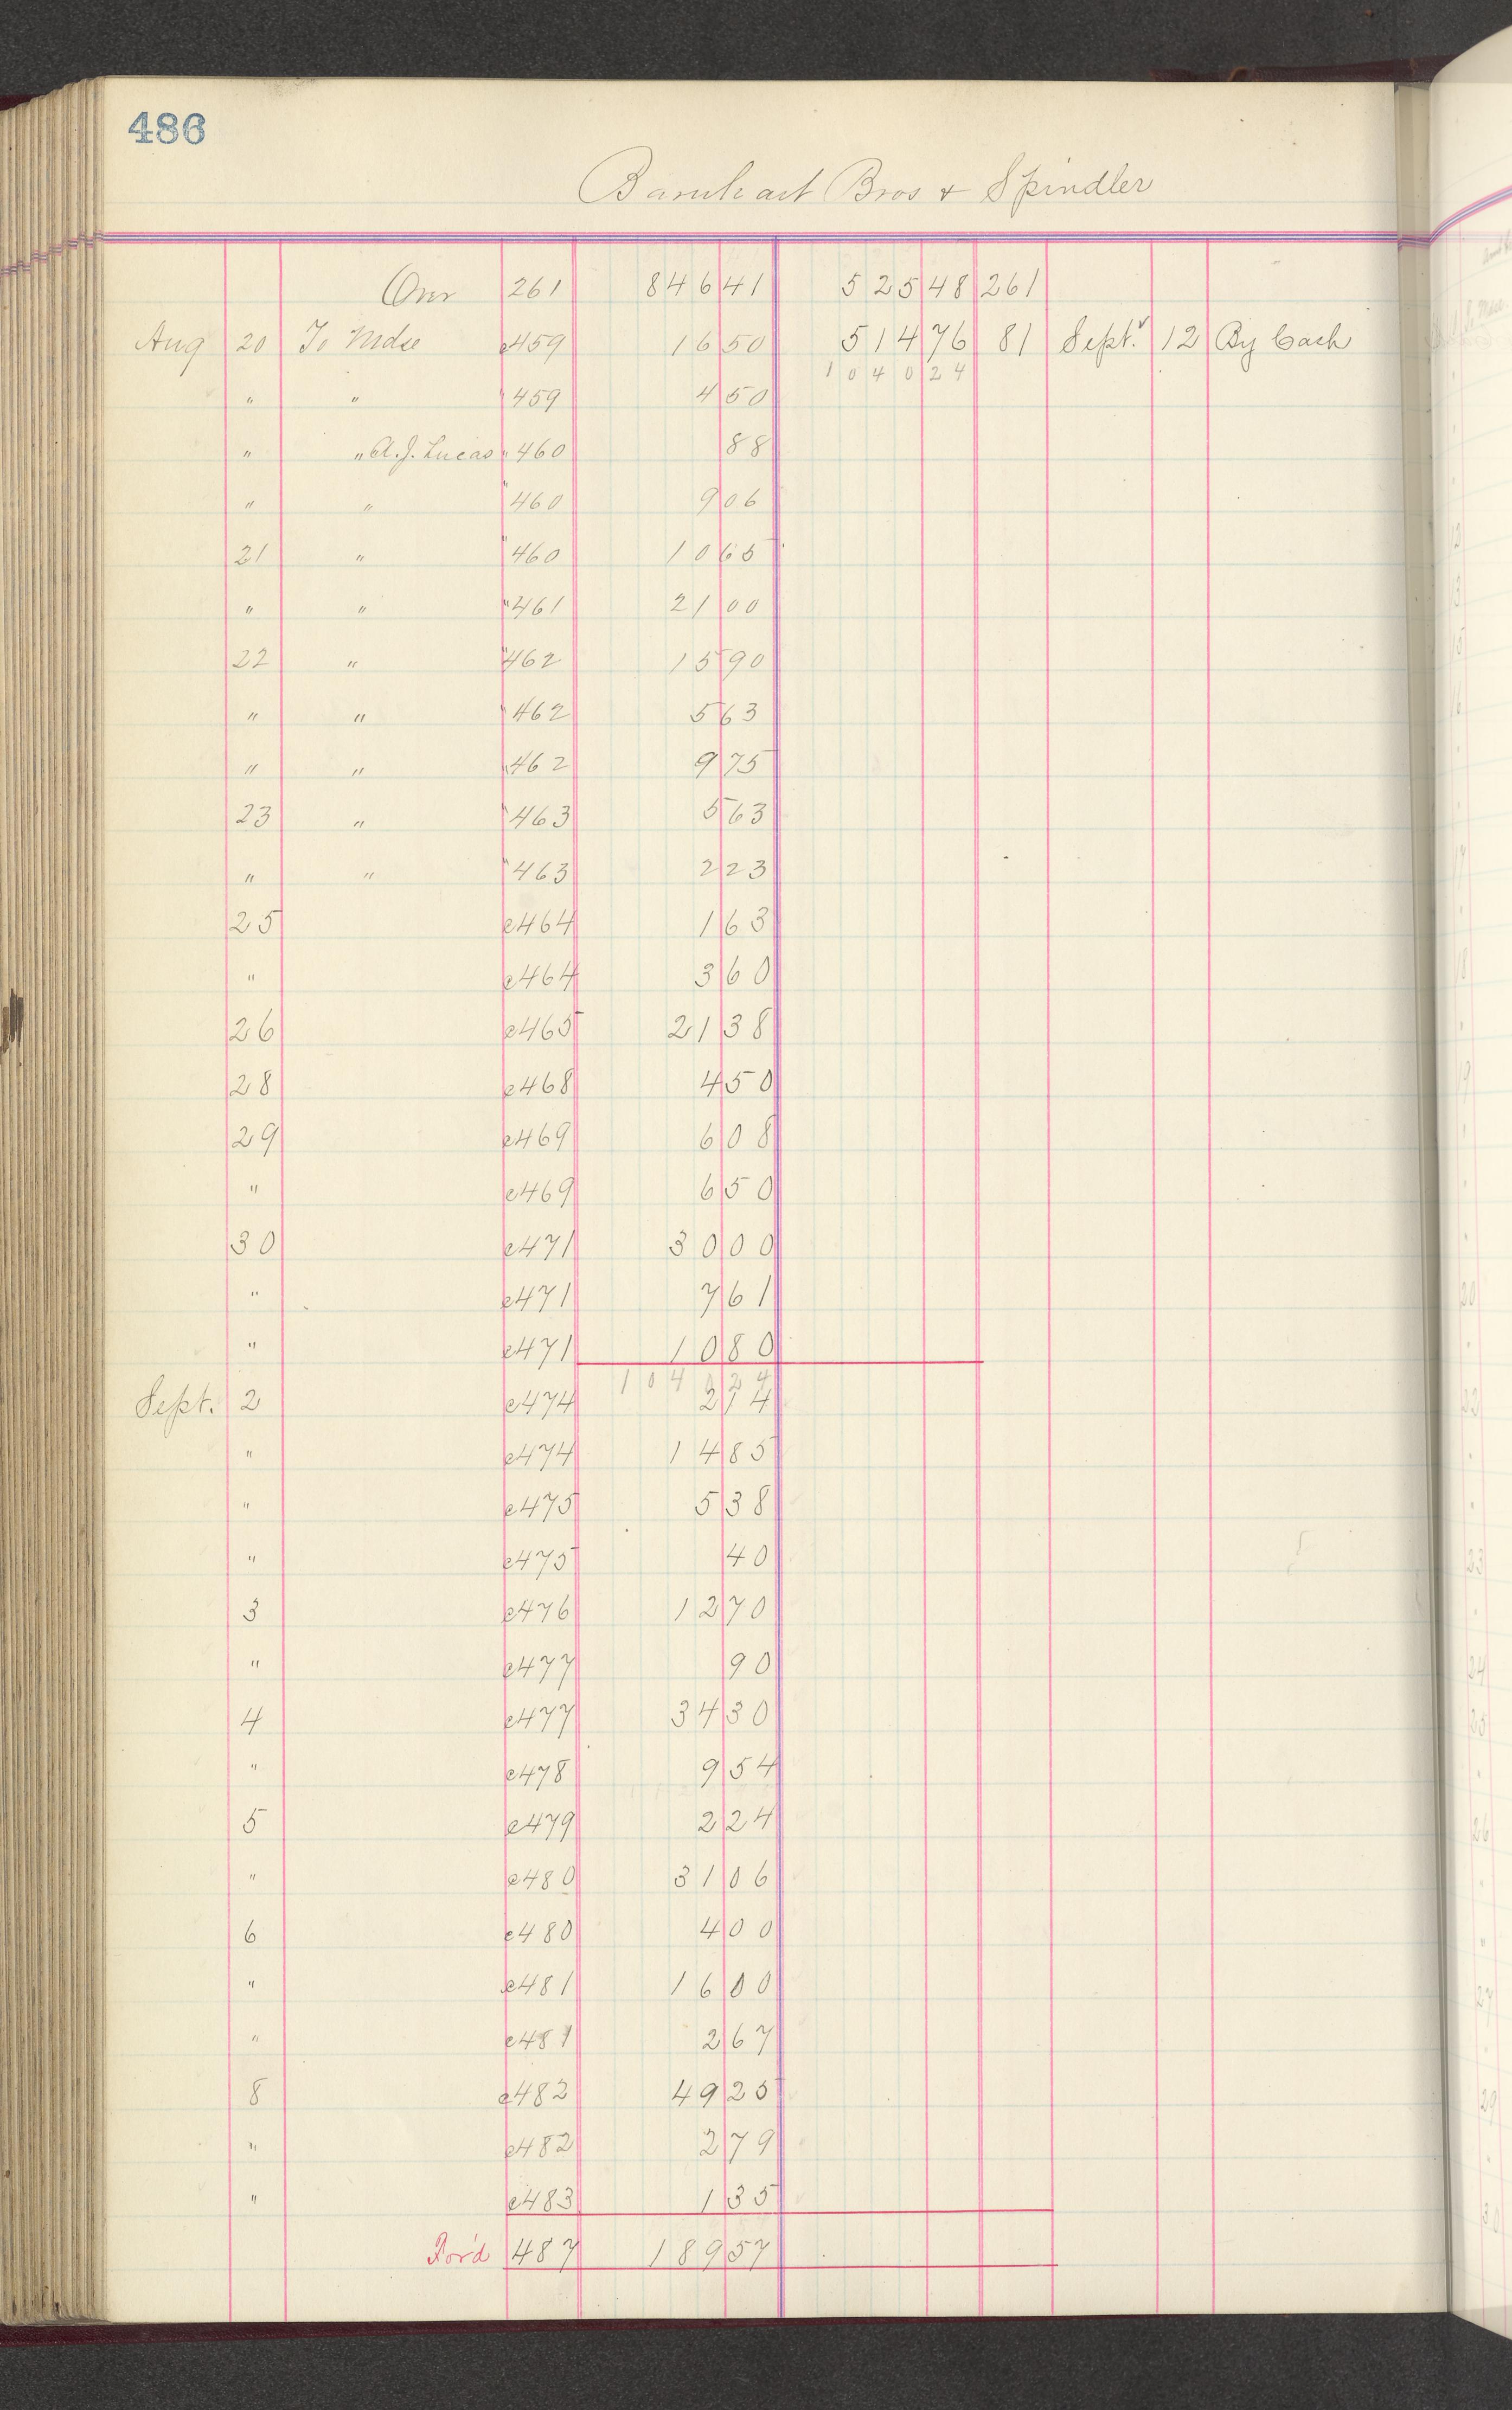 486
Barnhart Bros & Spindler
Over 261 846 41 525 48 261
Aug 20 To Mdse c459 16 50 514 76 81 Sept. 12 By Cash
1040 24
" " " 459 4 50
" " A. J. Lucas " 460 88
" " " 460 9 06
21 " " 460 10 65
" " " 461 21 00
22 " " 462 15 90
" " " 462 5 63
" " " 462 9 75
23 " " 463 5 63
" " " 463 2 23
25 c464 1 63
" c464 3 60
26 c465 21 38
28 c468 4 50
29 c469 6 08
" c469 6 50
30 c471 30 00
" c471 7 61
" c471 10 80
1040 24
Sept. 2 c474 2 14
" c474 14 85
" c475 5 38
" c475 40
3 c476 12 70
" c477 90
4 c477 34 30
" c478 9 54
5 c479 2 24
" c480 31 06
6 c480 4 00
" c481 16 00
" c481 2 67
8 c482 49 25
" c482 2 79
" c483 1 35
For'd 487 189 57